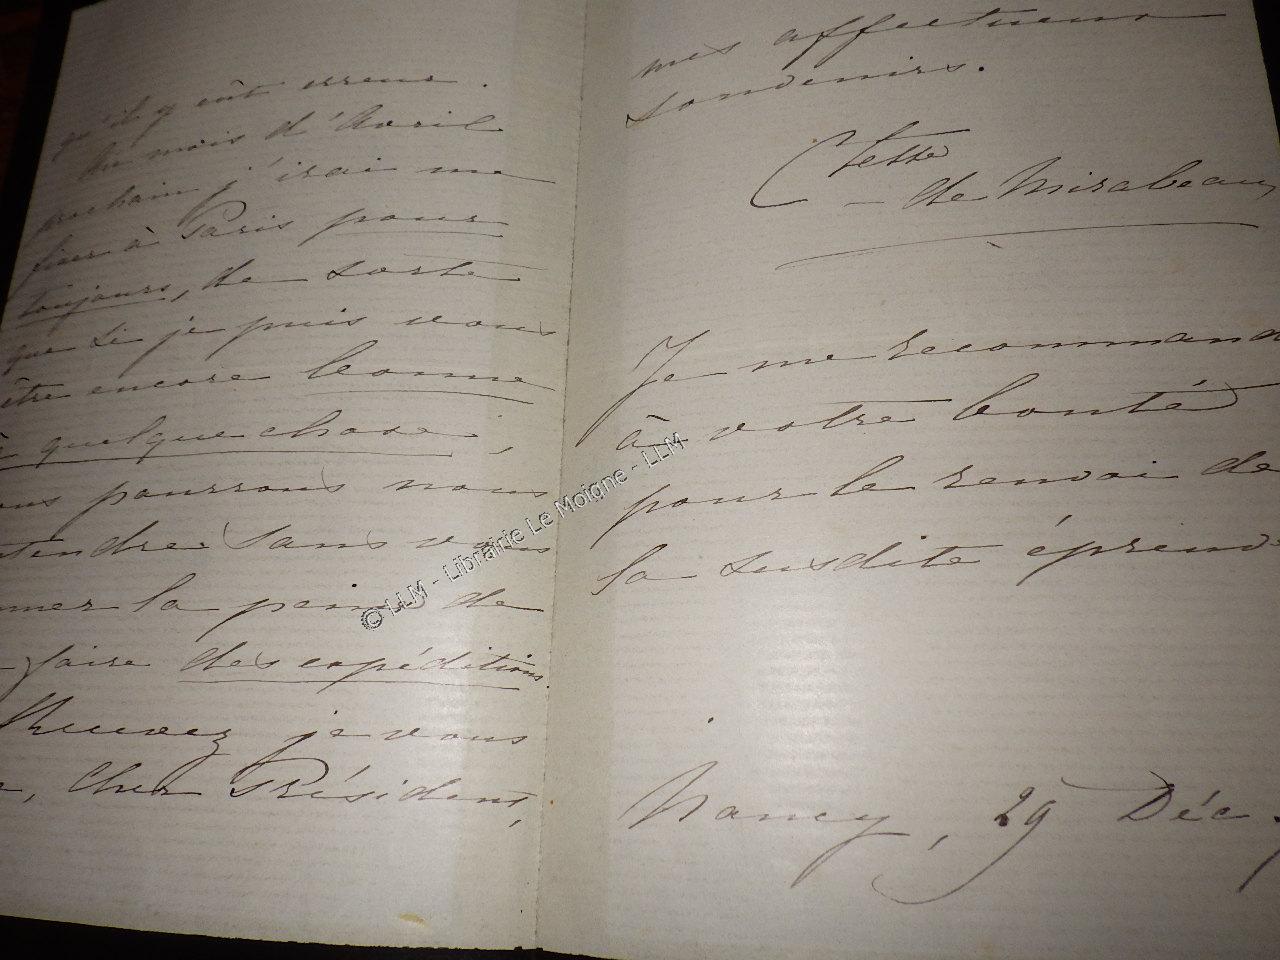 qu'il y eût erreur.
Au mois d'Avril
prochain j'irai me
fixer à Paris pour
toujours, de sorte
que si je puis vous
être encore bonne
à quelque chose,
ous pourrons nous
tendre sans vous
nner la peine de
faire des expéditions.
Recevez je vous
e, Cher Président,
mes affectueux
souvenirs.
Ctesse
de Mirabeau
Je me recommand
à votre bonté
pour le renvoi de
la susdite épreuv
Nancy, 29 Déc.
© LLM - Librairie Le Moigne - LLM